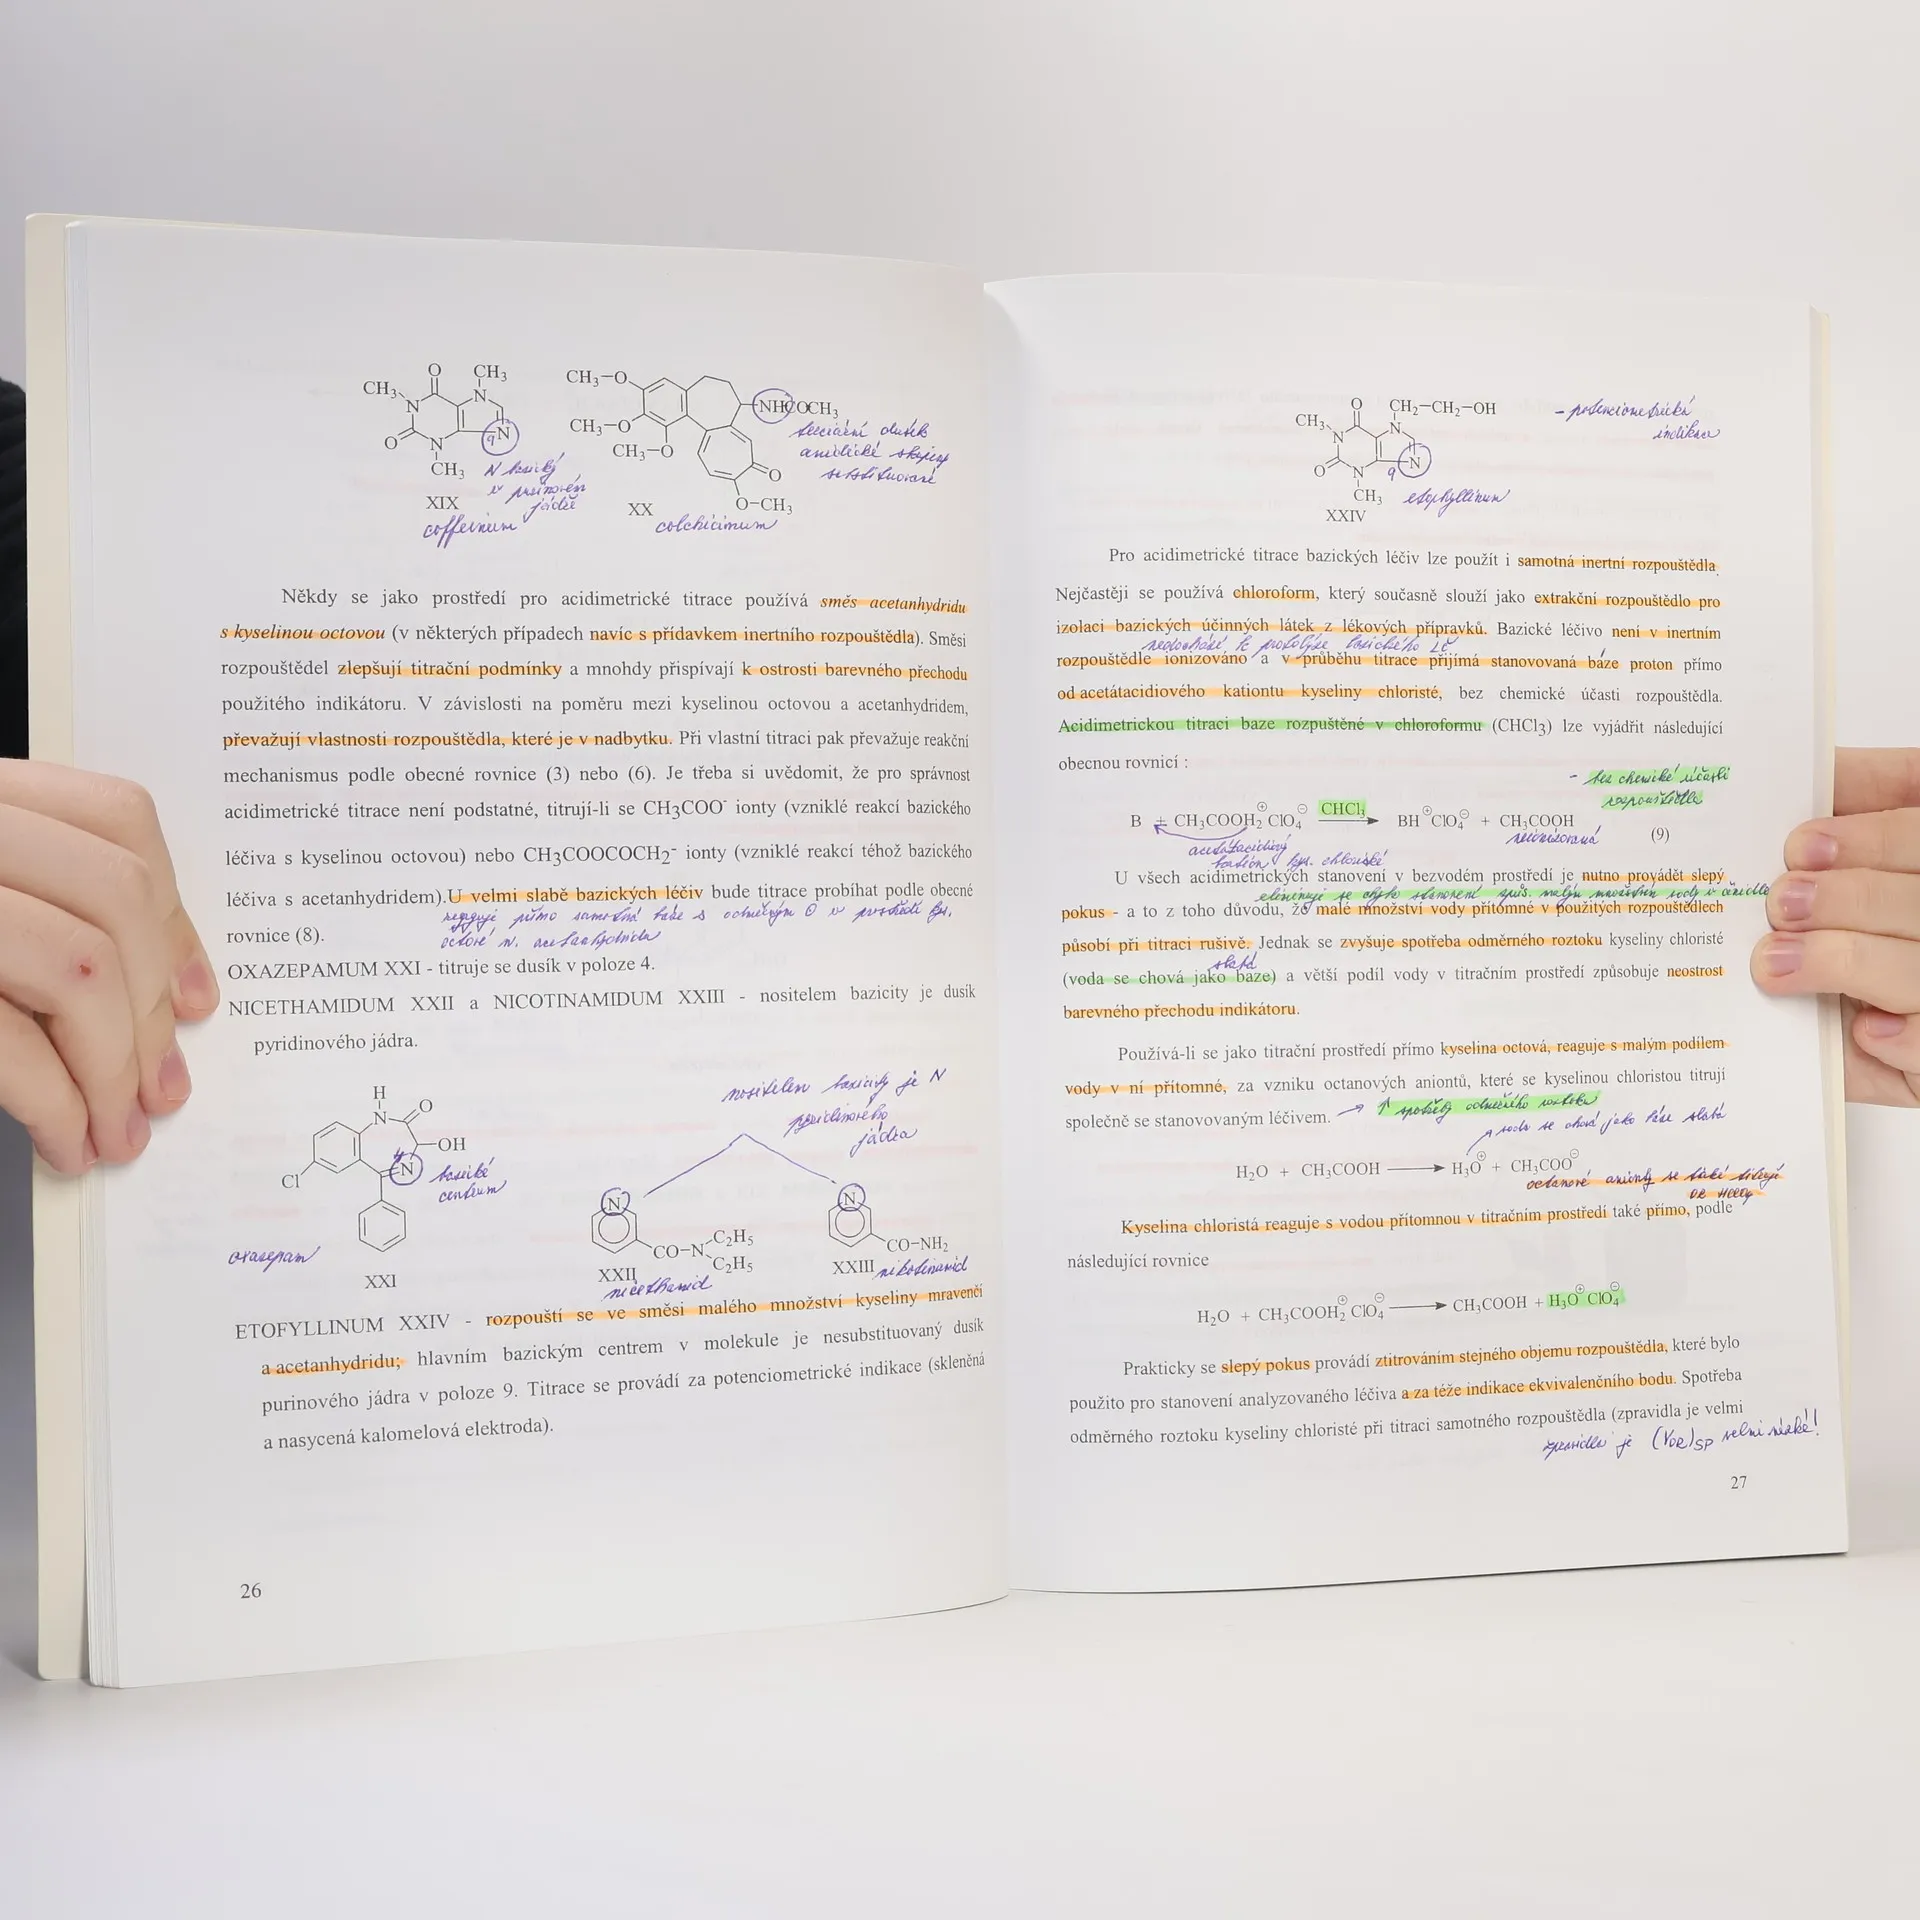 CH₃ O CH₃
N N
O N N
9
CH₃
XIX
N bazický
v purinovém
jádře
coffeinum
CH₃–O
CH₃–O
CH₃–O
NHCOCH₃
O
O–CH₃
XX
colchicinum
terciární dusík
amidické skupiny
substituované
Někdy se jako prostředí pro acidimetrické titrace používá směs acetanhydridu
s kyselinou octovou (v některých případech navíc s přídavkem inertního rozpouštědla). Směsi
rozpouštědel zlepšují titrační podmínky a mnohdy přispívají k ostrosti barevného přechodu
použitého indikátoru. V závislosti na poměru mezi kyselinou octovou a acetanhydridem,
převažují vlastnosti rozpouštědla, které je v nadbytku. Při vlastní titraci pak převažuje reakční
mechanismus podle obecné rovnice (3) nebo (6). Je třeba si uvědomit, že pro správnost
acidimetrické titrace není podstatné, titrují-li se CH₃COO⁻ ionty (vzniklé reakcí bazického
léčiva s kyselinou octovou) nebo CH₃COOCOCH₂⁻ ionty (vzniklé reakcí téhož bazického
léčiva s acetanhydridem).U velmi slabě bazických léčiv bude titrace probíhat podle obecné
reaguje přímo samotná báze s odměrným v prostředí kys.
rovnice (8).
octové n. acetanhydridu
OXAZEPAMUM XXI - titruje se dusík v poloze 4.
NICETHAMIDUM XXII a NICOTINAMIDUM XXIII - nositelem bazicity je dusík
pyridinového jádra.
nositelem bazicity je N
pyridinového
jádra
H
N O
OH
4 N
Cl
bazické
centrum
oxazepam
XXI
N
CO–N
C₂H₅
C₂H₅
XXII
nicethamid
N
CO–NH₂
XXIII nikotinamid
ETOFYLLINUM XXIV - rozpouští se ve směsi malého množství kyseliny mravenčí
a acetanhydridu; hlavním bazickým centrem v molekule je nesubstituovaný dusík
purinového jádra v poloze 9. Titrace se provádí za potenciometrické indikace (skleněná
a nasycená kalomelová elektroda).
26
CH₃ O CH₂–CH₂–OH
N N
O N N
9
CH₃
XXIV
etophyllinum
- potenciometrická
indikace
Pro acidimetrické titrace bazických léčiv lze použít i samotná inertní rozpouštědla.
Nejčastěji se používá chloroform, který současně slouží jako extrakční rozpouštědlo pro
izolaci bazických účinných látek z lékových přípravků. Bazické léčivo není v inertním
nedochází k protolýze bazického LČ
rozpouštědle ionizováno a v průběhu titrace přijímá stanovovaná báze proton přímo
od acetátacidiového kationtu kyseliny chloristé, bez chemické účasti rozpouštědla.
Acidimetrickou titraci baze rozpuštěné v chloroformu (CHCl₃) lze vyjádřit následující
obecnou rovnicí :
- bez chemické účasti
rozpouštědla
B + CH₃COOH₂⊕ ClO₄⊖ CHCl₃ → BH⊕ClO₄⊖ + CH₃COOH (9)
acetátacidiový
kation kys. chloristé
neionizovaná
U všech acidimetrických stanovení v bezvodém prostředí je nutno provádět slepý
eliminuje se chyba stanovení způs. malým množstvím vody v činidle
pokus - a to z toho důvodu, že malé množství vody přítomné v použitých rozpouštědlech
působí při titraci rušivě. Jednak se zvyšuje spotřeba odměrného roztoku kyseliny chloristé
slabá
(voda se chová jako báze) a větší podíl vody v titračním prostředí způsobuje neostrost
barevného přechodu indikátoru.
Používá-li se jako titrační prostředí přímo kyselina octová, reaguje s malým podílem
vody v ní přítomné, za vzniku octanových aniontů, které se kyselinou chloristou titrují
společně se stanovovaným léčivem. → ↑ spotřeby odměrného roztoku
voda se chová jako báze slabá
H₂O + CH₃COOH → H₃O⊕ + CH₃COO⊖
octanové anionty se také titrují
OR HClO₄
Kyselina chloristá reaguje s vodou přítomnou v titračním prostředí také přímo, podle
následující rovnice
H₂O + CH₃COOH₂⊕ ClO₄⊖ → CH₃COOH + H₃O⊕ ClO₄⊖
Prakticky se slepý pokus provádí ztitrováním stejného objemu rozpouštědla, které bylo
použito pro stanovení analyzovaného léčiva a za téže indikace ekvivalenčního bodu. Spotřeba
odměrného roztoku kyseliny chloristé při titraci samotného rozpouštědla (zpravidla je velmi
zpravidla je (VOR)SP velmi nízké!
27